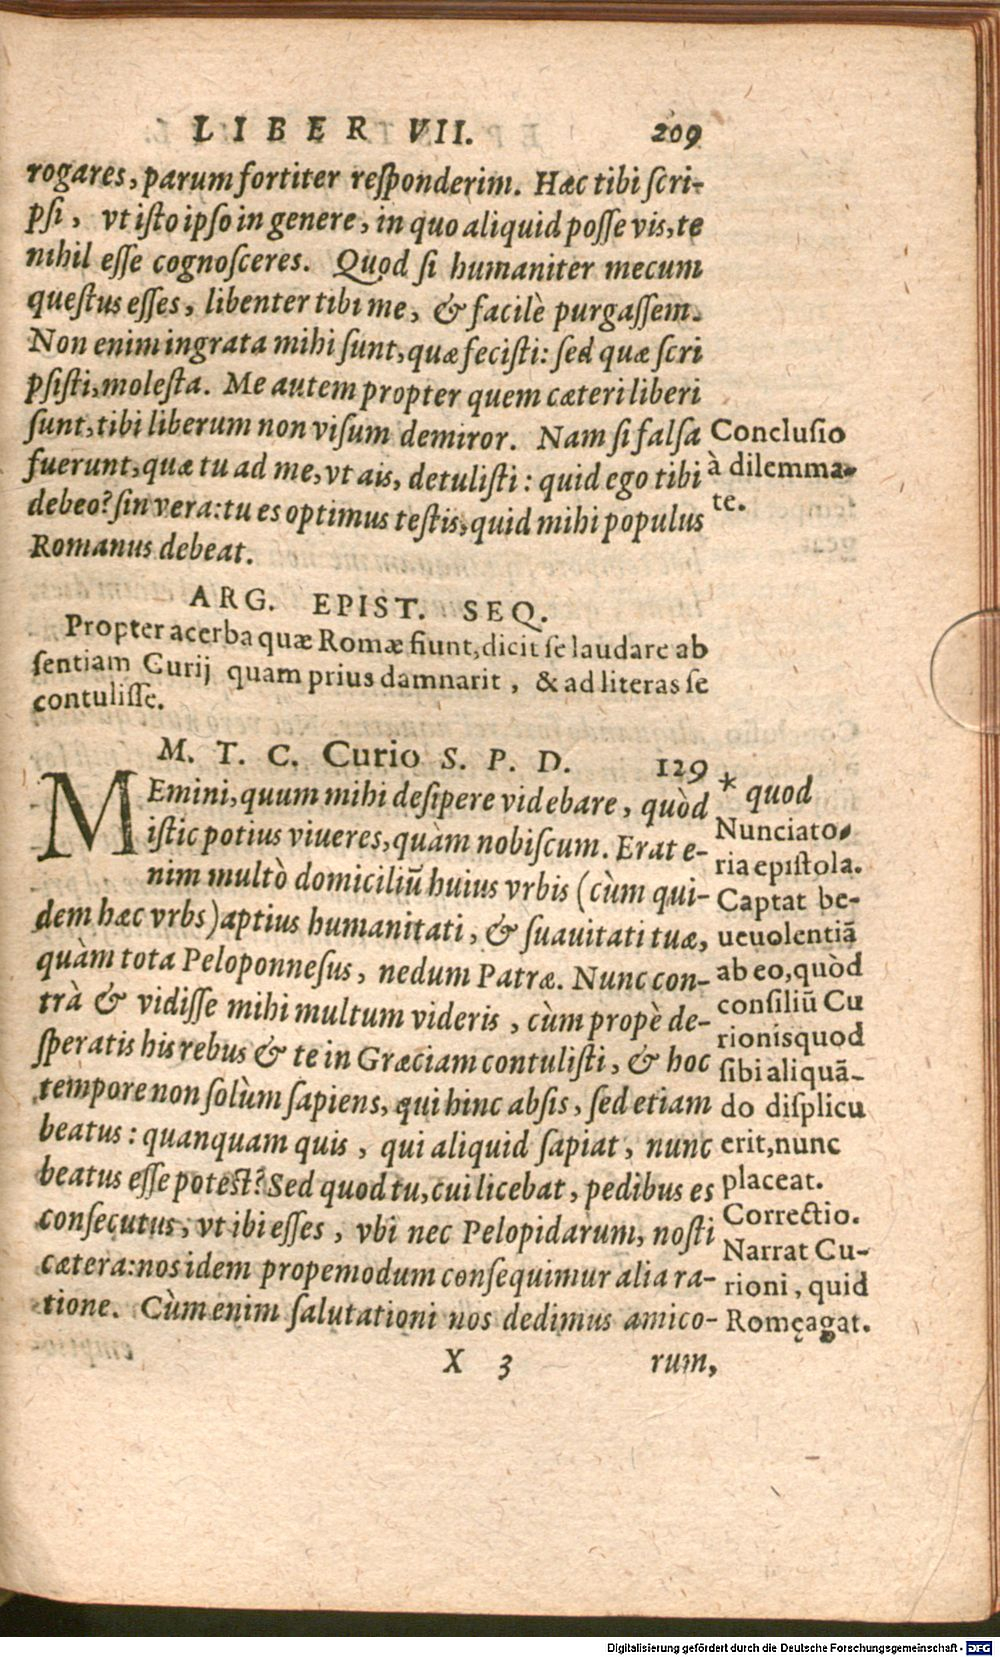 LIBER VII. 209
rogares, parum fortiter reſponderim. Hæc tibi ſcri-
pſi, vt iſto ipſo in genere, in quo aliquid poſſe vis, te
nihil eſſe cognoſceres. Quod ſi humaniter mecum
queſtus eſſes, libenter tibi me, & facilè purgaſſem.
Non enim ingrata mihi ſunt, quæ feciſti: ſed quæ ſcri
pſiſti, moleſta. Me autem propter quem cæteri liberi
ſunt, tibi liberum non viſum demiror. Nam ſi falſa
fuerunt, quæ tu ad me, vt ais, detuliſti: quid ego tibi
debeo? ſin vera: tu es optimus teſtis, quid mihi populus
Romanus debeat.
Concluſio
à dilemma-
te.
ARG. EPIST. SEQ.
Propter acerba quæ Romæ fiunt, dicit ſe laudare ab
ſentiam Curij quam prius damnarit, & ad literas ſe
contuliſſe.
M. T. C. Curio S. P. D. 129
MEmini, quum mihi deſipere videbare, quòd
iſtic potius viueres, quàm nobiſcum. Erat e-
nim multò domiciliũ huius vrbis (cùm qui-
dem hæc vrbs) aptius humanitati, & ſuauitati tuæ,
quàm tota Peloponneſus, nedum Patræ. Nunc con-
trà & vidiſſe mihi multum videris, cùm propè de-
ſperatis his rebus & te in Græciam contuliſti, & hoc
tempore non ſolùm ſapiens, qui hinc abſis, ſed etiam
beatus: quanquam quis, qui aliquid ſapiat, nunc
beatus eſſe poteſt? Sed quod tu, cui licebat, pedibus es
conſecutus, vt ibi eſſes, vbi nec Pelopidarum, noſti
cætera: nos idem propemodum conſequimur alia ra-
tione. Cùm enim ſalutationi nos dedimus amico-
* quod
Nunciato-
ria epiſtola.
Captat be-
ueuolentiã
ab eo, quòd
conſiliũ Cu
rionis quod
ſibi aliquã-
do diſplicu
erit, nunc
placeat.
Correctio.
Narrat Cu-
rioni, quid
Romę agat.
X 3 rum,
Digitalisierung gefördert durch die Deutsche Forschungsgemeinschaft - DFG